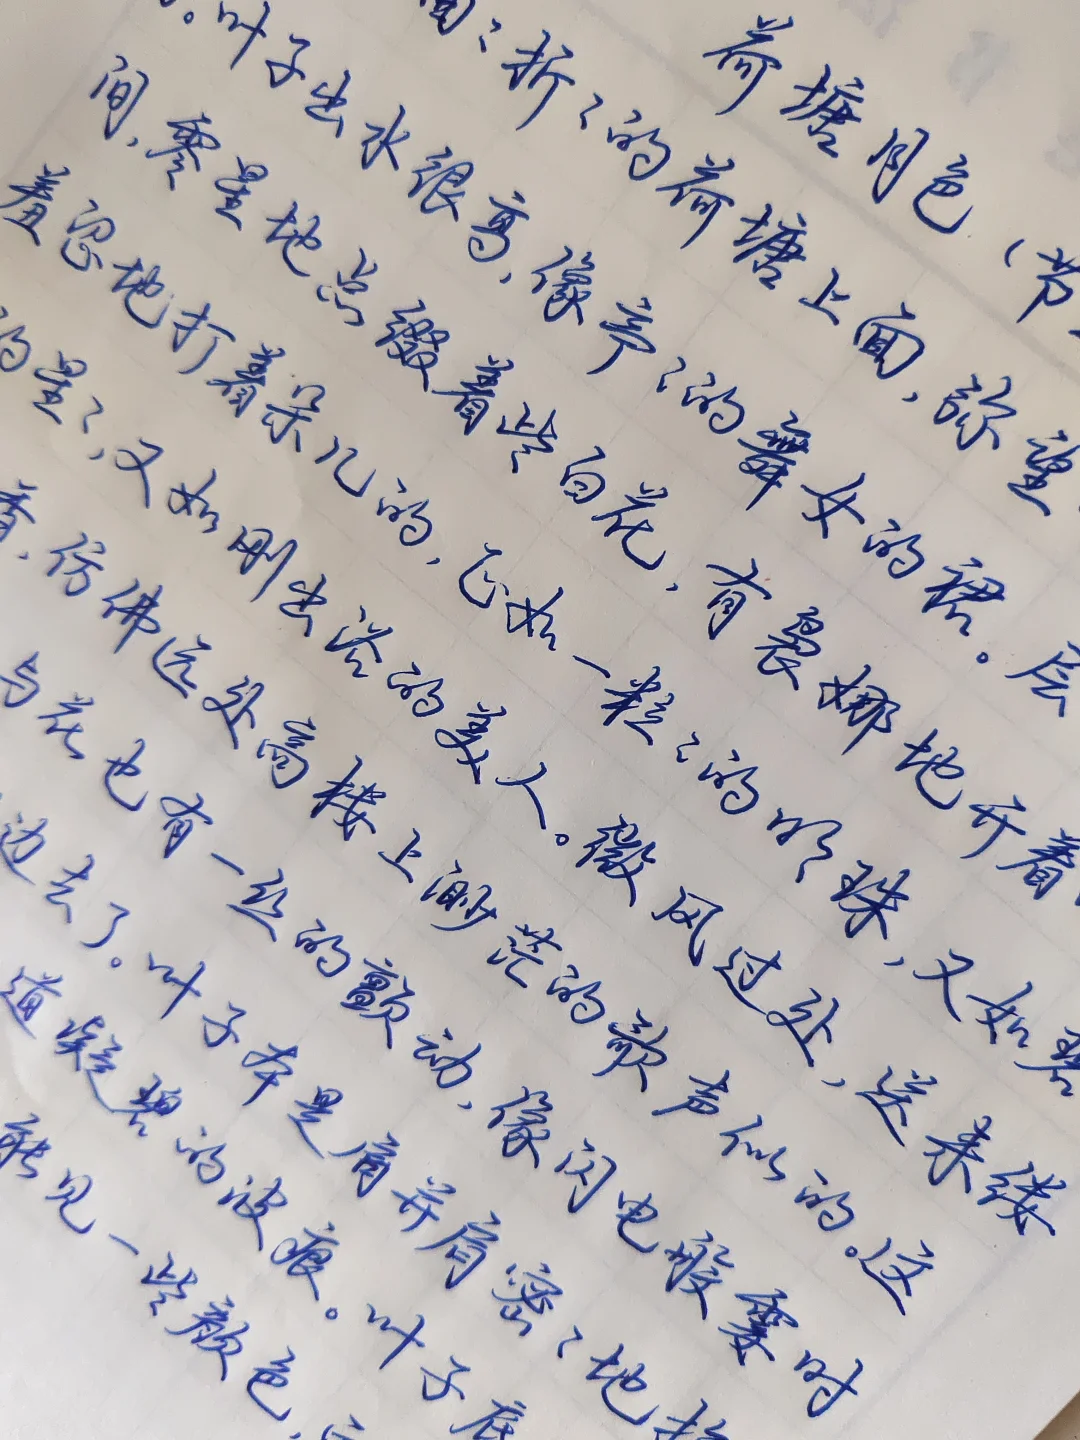 荷塘月色（节
面：折〻的荷塘上面，弥望
。叶子出水很高，像亭〻的舞女的裙。层
间，零星地点缀着些白花，有袅娜地开着
羞忍地打着朵儿的，正如一粒〻的明珠，又如碧
的星〻，又如刚出浴的美人。微风过处，送来缕
香，仿佛远处高楼上渺茫的歌声似的。这
与花也有一丝的颤动，像闪电般霎时
边去了。叶子本是肩并肩密〻地
道凝碧的波痕。叶子底
能见一些颜色，